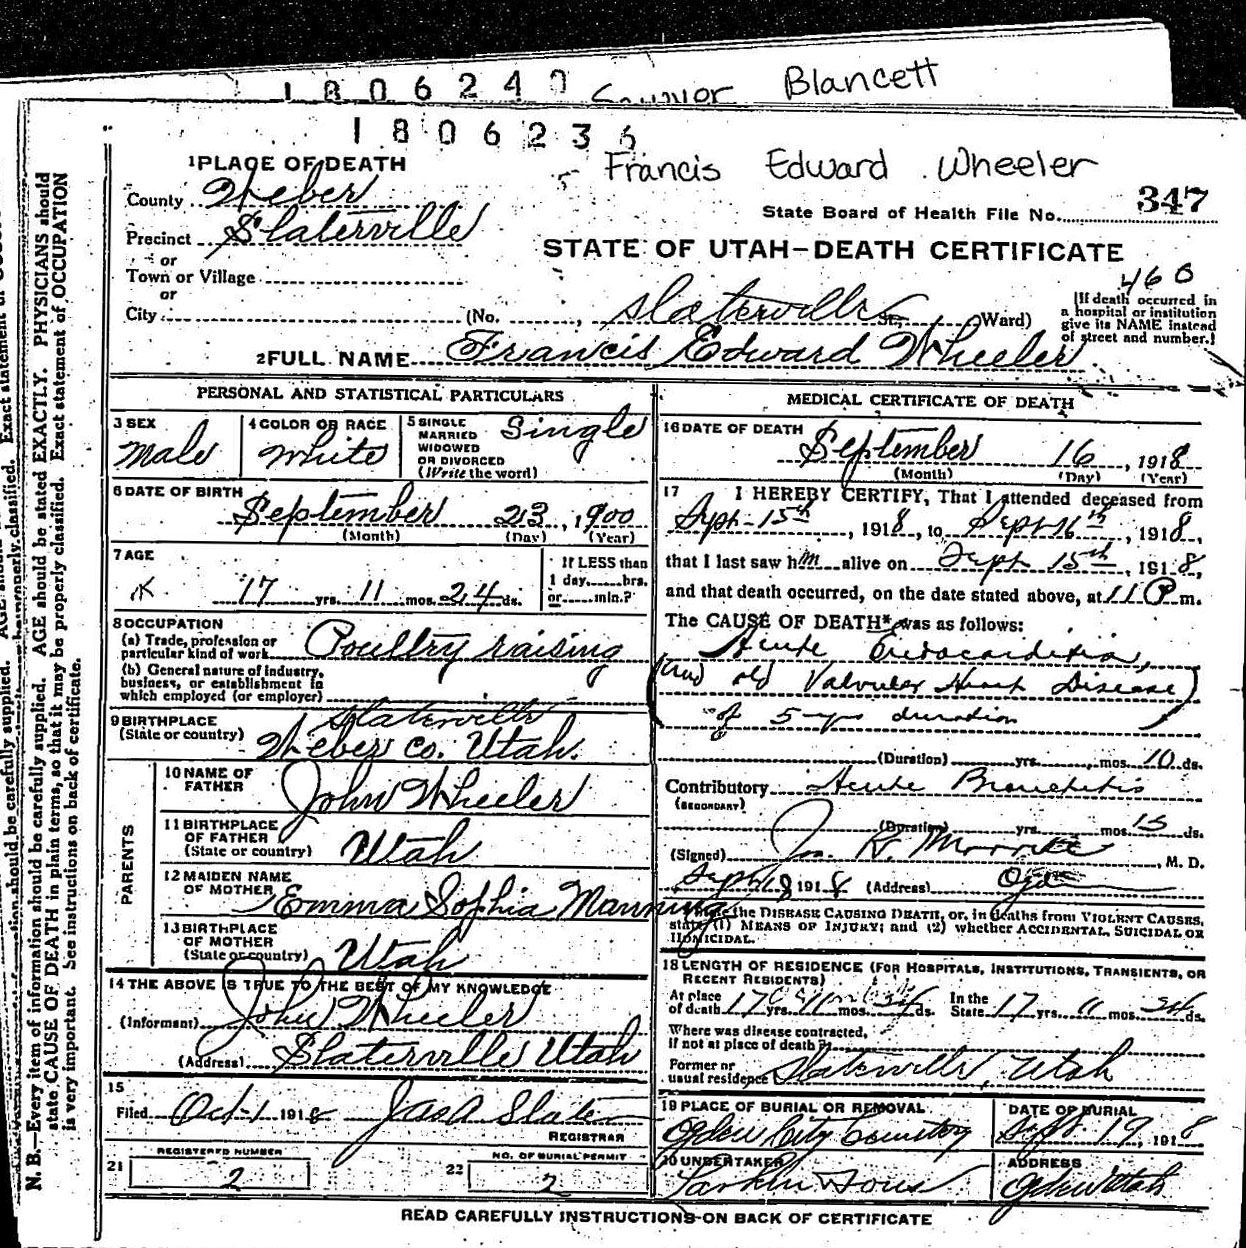 1806240 Blancett
1806236
Francis Edward Wheeler
1 PLACE OF DEATH
County Weber
Precinct Slaterville
or
Town or Village
or
City
State Board of Health File No. 347
STATE OF UTAH—DEATH CERTIFICATE
460
(No. , Slaterville St., Ward)
[If death occurred in
a hospital or institution
give its NAME instead
of street and number.]
2 FULL NAME Francis Edward Wheeler
PERSONAL AND STATISTICAL PARTICULARS
3 SEX
Male
4 COLOR OR RACE
White
5 SINGLE
MARRIED
WIDOWED
OR DIVORCED
(Write the word)
Single
6 DATE OF BIRTH
September 23, 1900
(Month) (Day) (Year)
7 AGE
17 yrs. 11 mos. 24 ds.
If LESS than
1 day, hrs.
or min.?
8 OCCUPATION
(a) Trade, profession or
particular kind of work Poultry raising
(b) General nature of industry,
business, or establishment in
which employed (or employer)
9 BIRTHPLACE
(State or country)
Slaterville
Weber Co. Utah.
PARENTS
10 NAME OF
FATHER
John Wheeler
11 BIRTHPLACE
OF FATHER
(State or country)
Utah
12 MAIDEN NAME
OF MOTHER
Emma Sophia Manning
13 BIRTHPLACE
OF MOTHER
(State or country)
Utah
14 THE ABOVE IS TRUE TO THE BEST OF MY KNOWLEDGE
(Informant) John Wheeler
(Address) Slaterville Utah
15
Filed Oct-1 1918 Jas A Slater
REGISTRAR
REGISTERED NUMBER
21 2
NO. OF BURIAL PERMIT
22 2
MEDICAL CERTIFICATE OF DEATH
16 DATE OF DEATH
September 16, 1918
(Month) (Day) (Year)
17 I HEREBY CERTIFY, That I attended deceased from
Sept-15th, 1918, to Sept-16th, 1918,
that I last saw him alive on Sept 15th, 1918,
and that death occurred, on the date stated above, at 11 P m.
The CAUSE OF DEATH* was as follows:
Acute Endocarditis,
(and old Valvular Heart Disease
of 5 yrs duration)
(Duration) yrs. mos. 10 ds.
Contributory Acute Bronchitis
(SECONDARY)
(Duration) yrs. mos. 15 ds.
(Signed) Jos. R. Morrell, M. D.
Sept 18 1918 (Address) Ogden
the DISEASE CAUSING DEATH, or, in deaths from VIOLENT CAUSES,
state (1) MEANS OF INJURY; and (2) whether ACCIDENTAL, SUICIDAL OR
HOMICIDAL.
18 LENGTH OF RESIDENCE (FOR HOSPITALS, INSTITUTIONS, TRANSIENTS, OR
RECENT RESIDENTS)
At place
of death 17 yrs. 11 mos. 24 ds. In the
State 17 yrs. 11 mos. 24 ds.
Where was disease contracted,
if not at place of death?
Former or
usual residence Slaterville, Utah
19 PLACE OF BURIAL OR REMOVAL
Ogden City Cemetery
DATE OF BURIAL
Sept 19, 1918
20 UNDERTAKER
Larkin & Sons
ADDRESS
Ogden Utah
READ CAREFULLY INSTRUCTIONS ON BACK OF CERTIFICATE
N. B.—Every item of information should be carefully supplied. AGE should be stated EXACTLY. PHYSICIANS should
state CAUSE OF DEATH in plain terms, so that it may be properly classified. Exact statement of OCCUPATION
is very important. See instructions on back of certificate.